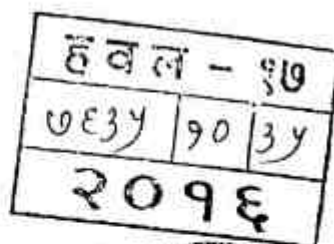 हवल - १७
७६३५ १० ३५
२०१६